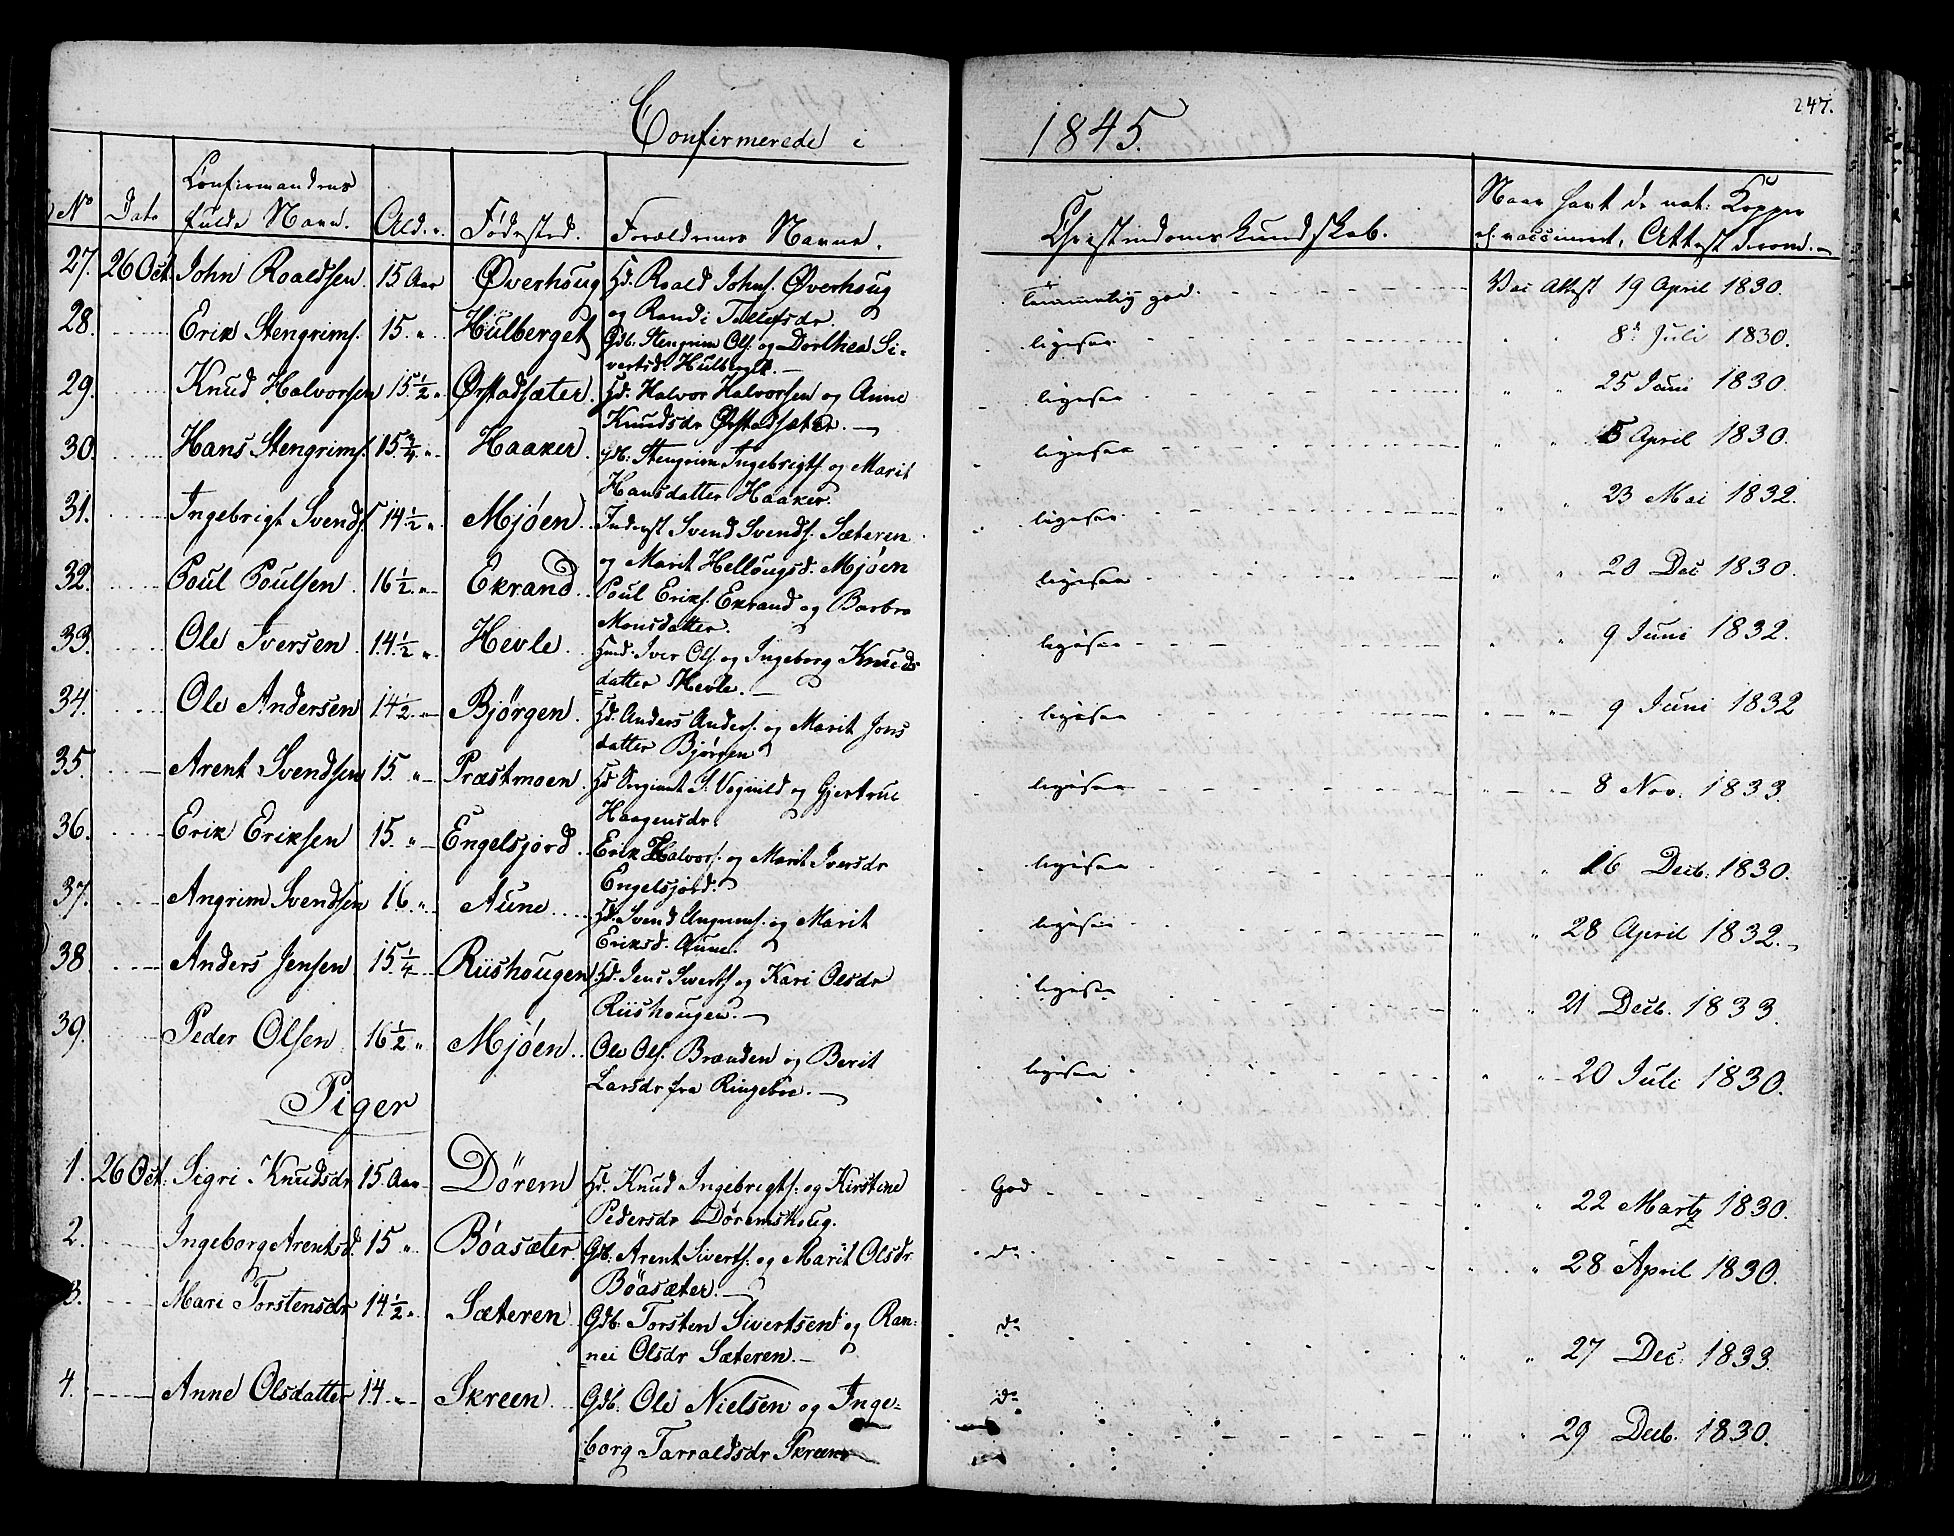 Confirmerede i 1845.
247.
No Dato Confirmandens fulde Navn. Ald. Fødested. Forældrenes Navne. Christendoms Kundskab. Naar havt de nat: Kopper el. vaccineret, Attest derom.
27. 26 Oct. John Roaldsen 15 Aar Øverhoug Gd. Roald Johns. Øverhoug temmelig god. Vac Attest 19 April 1830.
og Randi Tollefsdr.
28. Erik Stengrims. 15 " Hulberget Gdb. Stengrim Ols. og Dorthea Si- ligesaa 8de Juli 1830.
vertsdr Hulberget.
29. Knud Halvorsen 15 1/2 " Ørstadsæter. Gd. Halvor Halvorsen og Anne ligesaa 25 Juni 1830.
Knudsdr Ørstadsæter.
30. Hans Stengrims. 15 3/4 " Haaker. Gdb. Stengrim Ingebrigts. og Marit ligesaa 5 April 1830.
Hansdatter Haaker.
31. Ingebrigt Svends. 14 1/2 " Mjøen Inderst Svend Svends. Sæteren ligesaa 23 Mai 1832.
og Marit Hellougsd. Mjøen
32. Poul Poulsen 16 1/2 " Ekrand Poul Eriks. Ekrand og Barbro ligesaa 20 Dec 1830.
Monsdatter.
33. Ole Iversen 14 1/2 " Hevle. Gmd. Iver Ols. og Ingeborg Knuds- ligesaa 9 Juni 1832.
datter Hevle.
34. Ole Andersen 14 1/2 " Bjørgen. Gd. Anders Anders. og Marit Jons ligesaa 9 Juni 1832
datter Bjørgen
35. Arent Svendsen 15. " Præstmoen Gd Sergiant S. Vognild og Gjertrue ligesaa 8 Nov. 1833.
Haagensdr.
36. Erik Eriksen 15. " Engelsjord Erik Halvors. og Marit Iversdr ligesaa 16 Decb. 1830.
Engelsjord.
37. Angrim Svendsen 16 " Aune Gd. Svend Angrims. og Marit ligesaa 28 April 1832.
Eriksd. Aune.
38. Anders Jensen 15 1/4 Riishougen Gd. Jens Siverts. og Kari Olsdr ligesaa 21 Decb. 1833.
Riishougen.
39. Peder Olsen 16 1/2 " Mjøen Ole Ols. Brænden og Berit ligesaa 20 Juli 1830.
Larsdr fra Ringebu.
Piger
1. 26 Oct: Sigri Knudsdr 15. Aar Dørem Gd. Knud Ingebrigts. og Kirstine God 22 Martz 1830.
Pedersdr Døremshoug.
2. Ingeborg Arentsd. 15 " Böasæter. Gdb. Arent Siverts. og Marit Olsdr do 28 April 1830.
Böasæter.
3. Mari Torstensdr 14 1/2 " Sæteren Gdb. Torsten Sivertsen og Ran- do 27 Dec. 1833.
nei Olsdr Sæteren.
4. Anne Olsdatter 14. " Skreen Gdb. Ole Nielsen og Inge- do 29 Decb. 1830.
borg Tarraldsdr Skreen